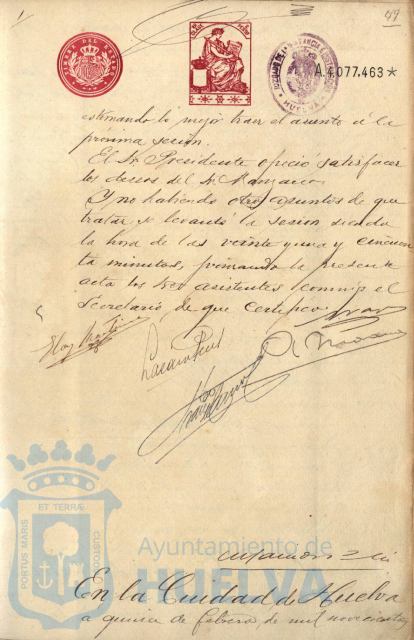 49
A.4.077.463*
HUELVA
estimando lo mejor traer el asunto á la
próxima sesión.
El Sr. Presidente ofreció satisfacer
los deseos del Sr.
Y no habiendo otros asuntos de que
tratar se levantó la sesión siendo
la hora de las veinte y una y cincuen
ta minutos, firmando la presente
acta los Sres asistentes conmigo el
Secretario de que certifico
PORTUS MARIS
ET TERRÆ
CUSTODIA
Ayuntamiento de
HUELVA
En la Ciudad de Huelva
a quince de febrero de mil novecientos